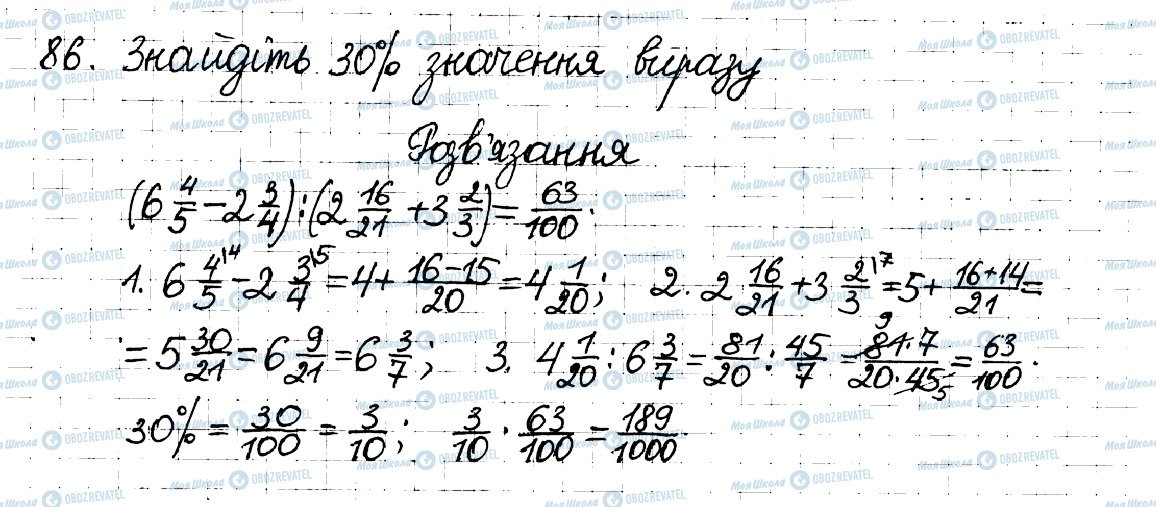 86. Знайдіть 30% значення виразу
Розв'язання
(6 4/5 − 2 3/4) : (2 16/21 + 3 2/3) = 63/100.
1. 6 4/5 − 2 3/4 = 4 + (16−15)/20 = 4 1/20; 2. 2 16/21 + 3 2/3 = 5 + (16+14)/21 =
= 5 30/21 = 6 9/21 = 6 3/7; 3. 4 1/20 : 6 3/7 = 81/20 : 45/7 = (81·7)/(20·45) = 63/100.
30% = 30/100 = 3/10; 3/10 · 63/100 = 189/1000